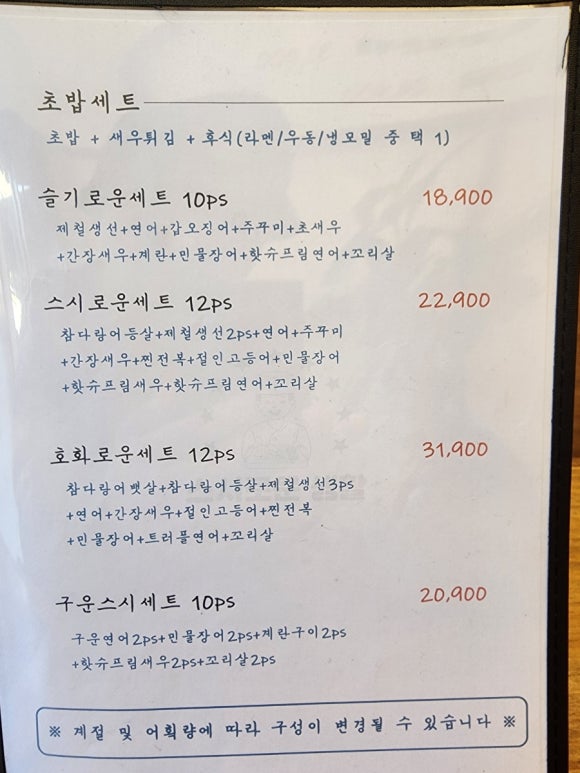 초밥세트
초밥 + 새우튀김 + 후식(라멘/우동/냉모밀 중 택 1)
슬기로운세트 10ps 18,900
제철생선+연어+갑오징어+주꾸미+초새우
+간장새우+계란+민물장어+핫슈프림연어+꼬리살
스시로운세트 12ps 22,900
참다랑어등살+제철생선2ps+연어+주꾸미
+간장새우+찐전복+절인고등어+민물장어
+핫슈프림새우+핫슈프림연어+꼬리살
호화로운세트 12ps 31,900
참다랑어뱃살+참다랑어등살+제철생선3ps
+연어+간장새우+절인고등어+찐전복
+민물장어+트러플연어+꼬리살
구운스시세트 10ps 20,900
구운연어2ps+민물장어2ps+계란구이2ps
+핫슈프림새우2ps+꼬리살2ps
※ 계절 및 어획량에 따라 구성이 변경될 수 있습니다 ※